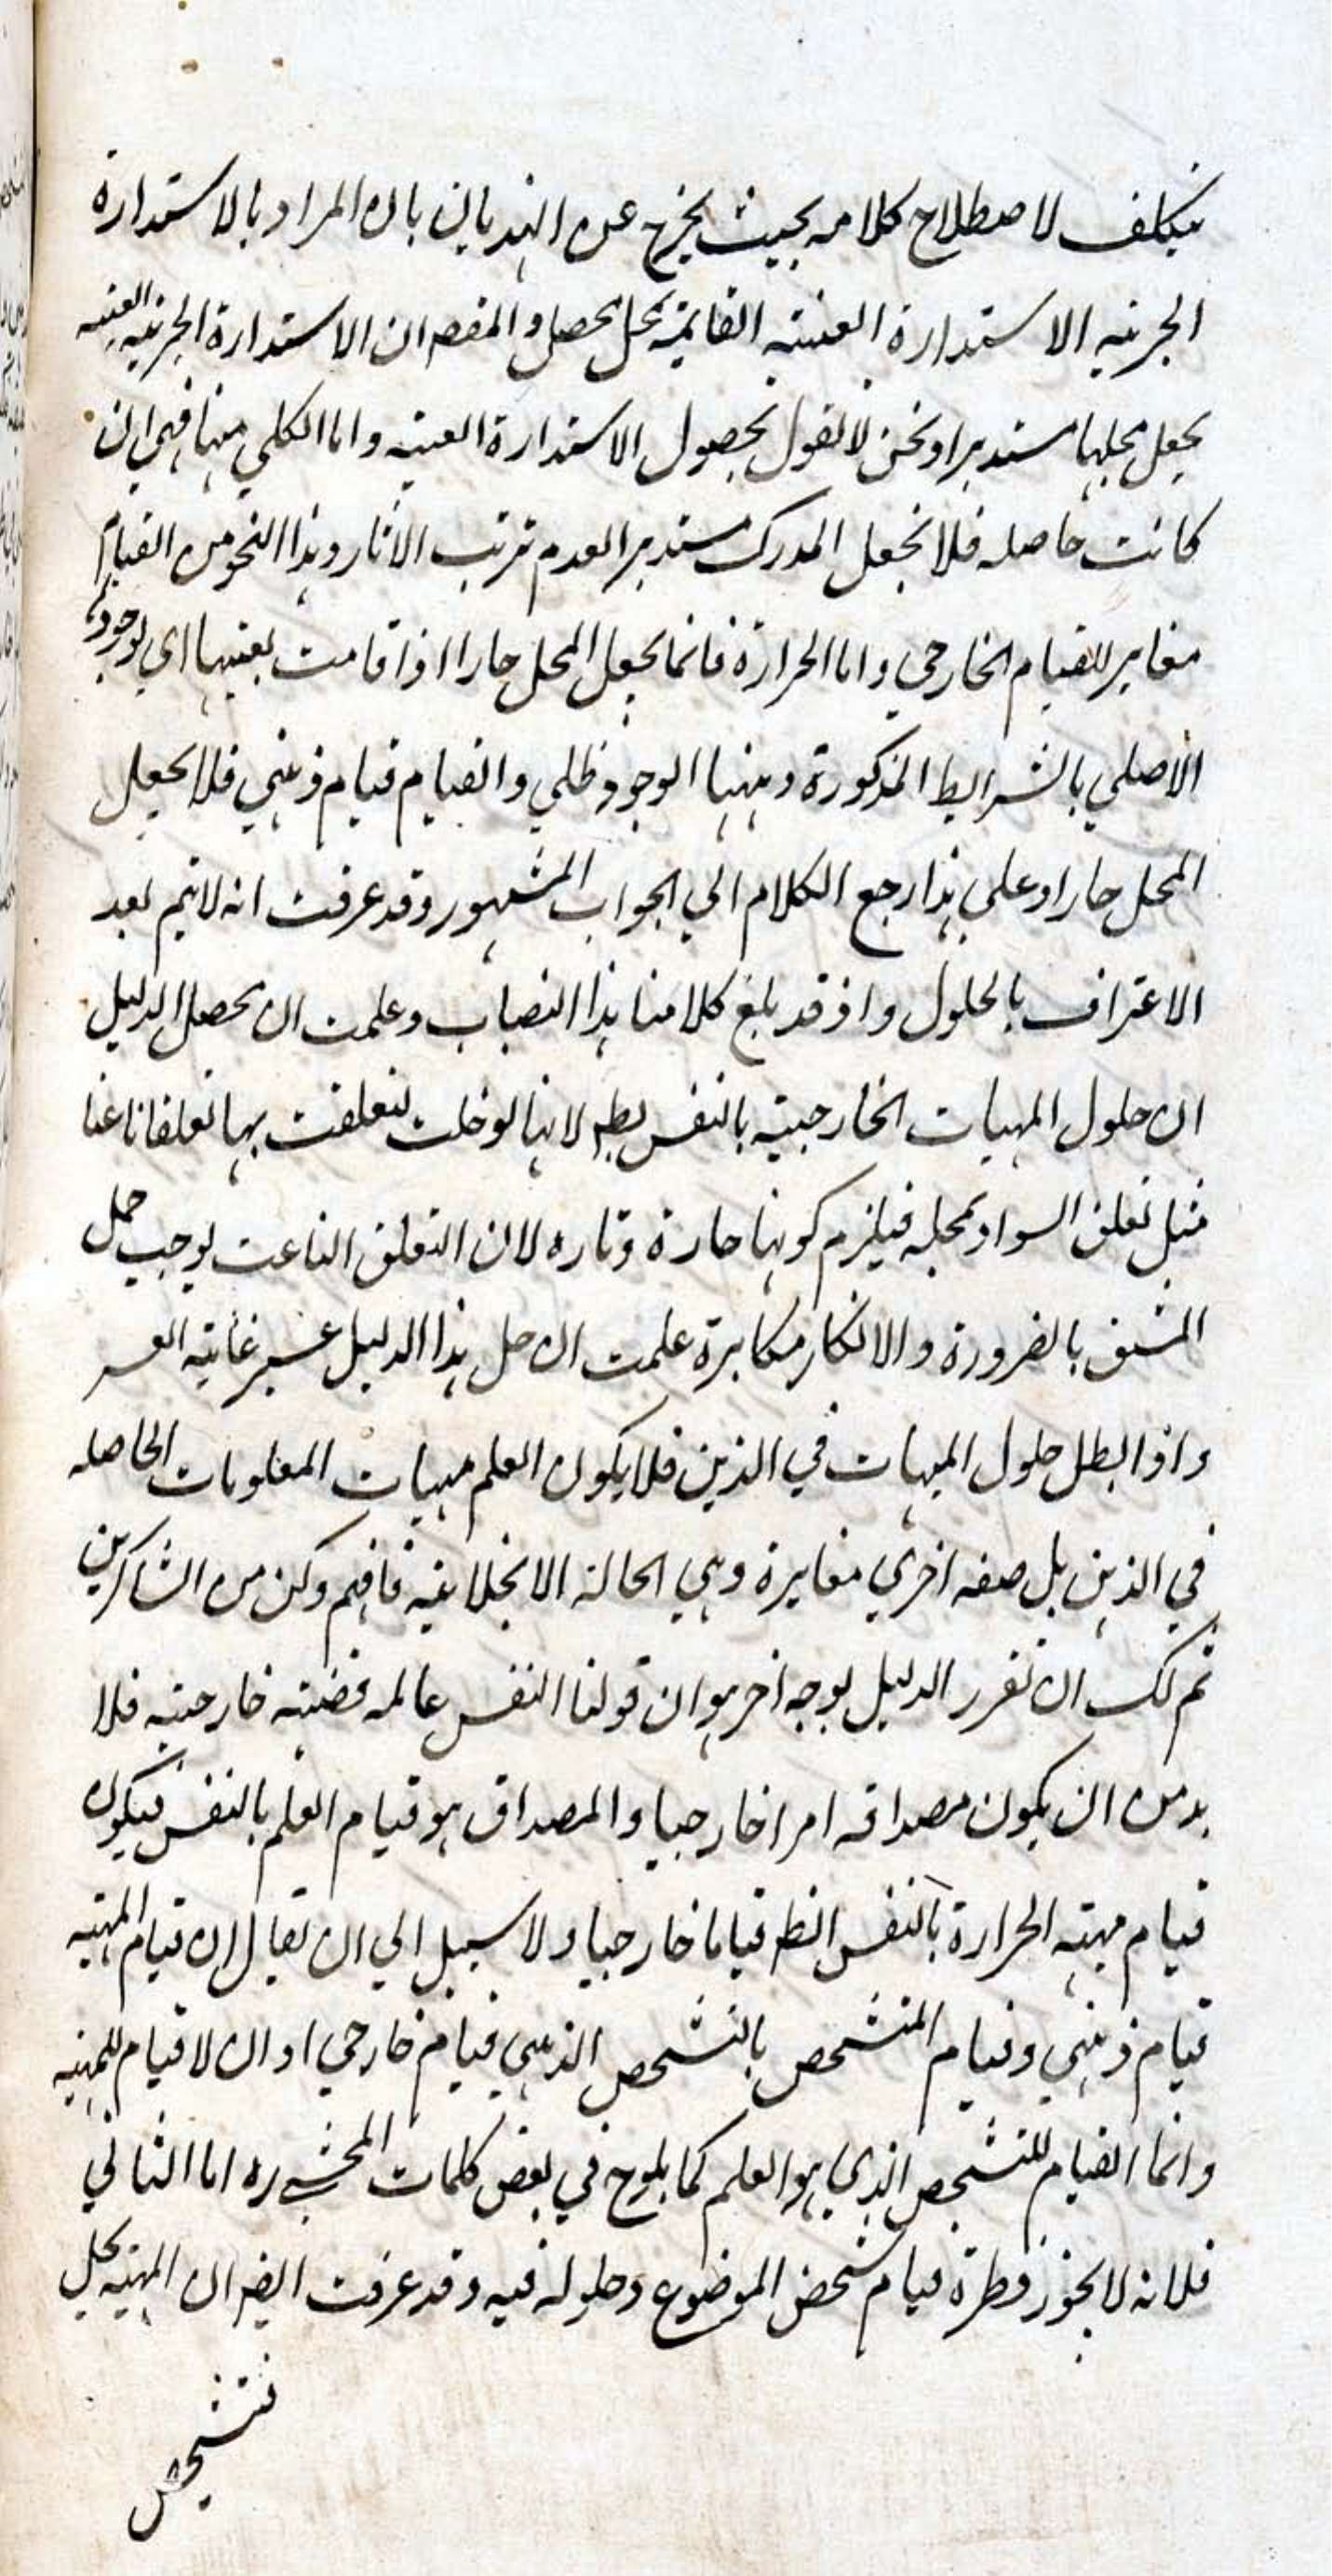 يتكلف لاصطلاح كلامه بحيث يخرج عن الهذيان بان المراد بالاستدارة
الجزئيه الاستدارة العينيه القايمة بمحل يحصل والمقصه ان الاستدارة الجزئيه العينيه
يجعل محلها مستديرا ونحن لا نقول بحصول الاستدارة العينيه واما الكلي منها فهي ان
كانت حاصله فلا تجعل المدرك مستديرا لعدم ترتب الاثار وهذا النحو من القيام
مغاير للقيام الخارجي واما الحرارة فانما يجعل المحل حارا اذا قامت بعينها اي بوجودها
الاصلي بالشرايط المذكورة وههنا الوجود ظلي والقيام قيام ذهني فلا يجعل
المحل حارا وعلي هذا رجع الكلام الي الجواب المشهور وقد عرفت انه لا يتم بعد
الاعتراف بالحلول واذ قد بلغ كلامنا هذا النصاب وعلمت ان محصل الدليل
ان حلول المهيات الخارجية بالنفس بطه لانها لو حلت لتعلقت بها تعلقا ناعتا
مثل تعلق السواد بمحله فيلزم كونها حارة وباره لان التعلق الناعت يوجب حمل
المشتق بالضرورة والانكار مكابرة علمت ان حل هذا الدليل عسير غاية العسر
واذ ابطل حلول المهيات في الذهن فلا يكون العلم مهيات المعلومات الحاصله
في الذهن بل صفه اخري مغايرة وهي الحالة الانجلائيه فافهم وكن من الشاكرين
ثم لك ان تقرر الدليل بوجه اخر هو ان قولنا النفس عالمه قضية خارجيه فلا
بد من ان يكون مصداقه امرا خارجيا والمصداق هو قيام العلم بالنفس فيكون
قيام مهية الحرارة بالنفس انظه قياما خارجيا ولا سبيل الي ان يقال ان قيام المهيه
قيام ذهني وقيام المتشخص بالتشخص الذهني قيام خارجي او ان لا قيام للمهيه
وانما القيام للتشخص الذي هو العلم كما يلوح في بعض كلمات المحشي ره اما الثاني
فلانه لا يجوز فطرة قيام شخص الموضوع وحلوله فيه وقد عرفت ايضه ان المهيه يحل
فتشخص